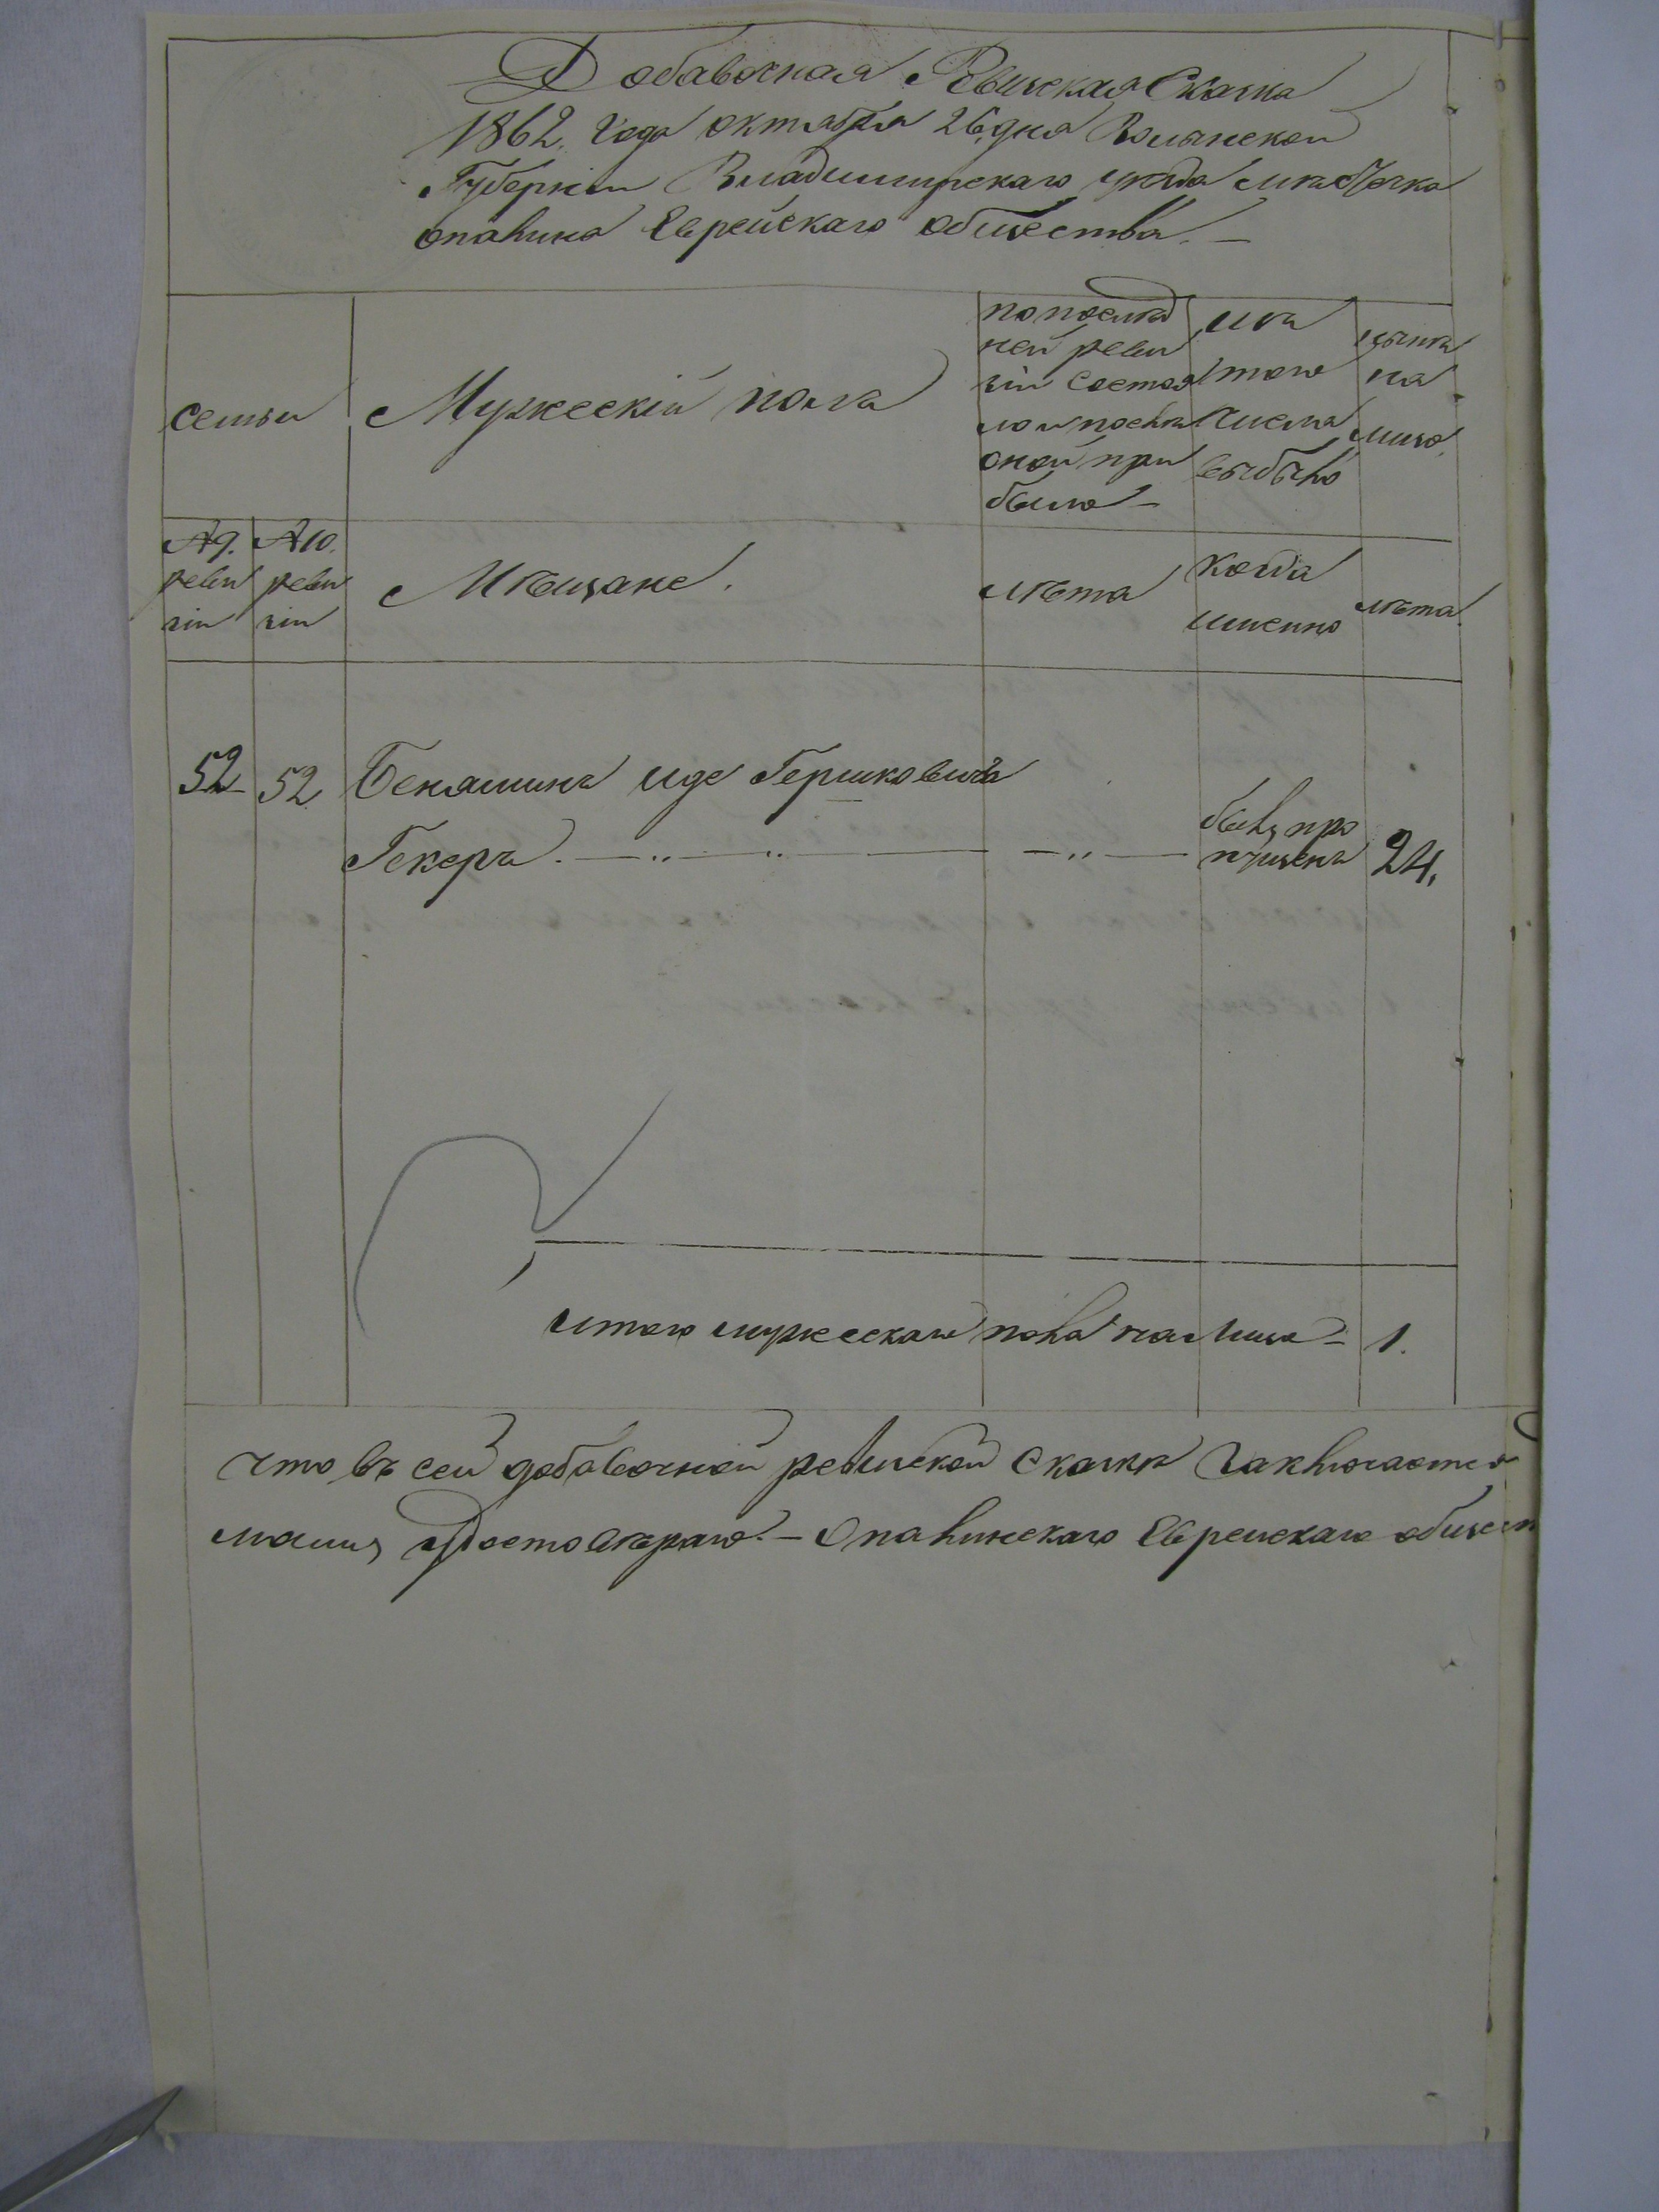 Добавочная Ревизская Сказка
1862. Года октября 26. дня Волынской
Губерніи Владимірскаго уѣзда мѣстечка
опалина Еврейскаго общества. —
семьи
Мужескій полъ
по послѣд
ней реви
зіи состоя
ло и послѣ
оной при
было —
изъ
того
числа
выбыло
нынѣ
на
лицо.
№ 9.
реви
зіи
№ 10.
реви
зіи
Мѣщане.
лѣта
когда
именно
лѣта.
52 52 Бенъяминъ Гершковичъ
Гекеръ. — " — " — — " —
былъ про
пущенъ 24.
итого мужескаго пола на лицо — 1.
что въ сей добавочной ревизской сказкѣ заключается
Опалинскаго Еврейскаго общест